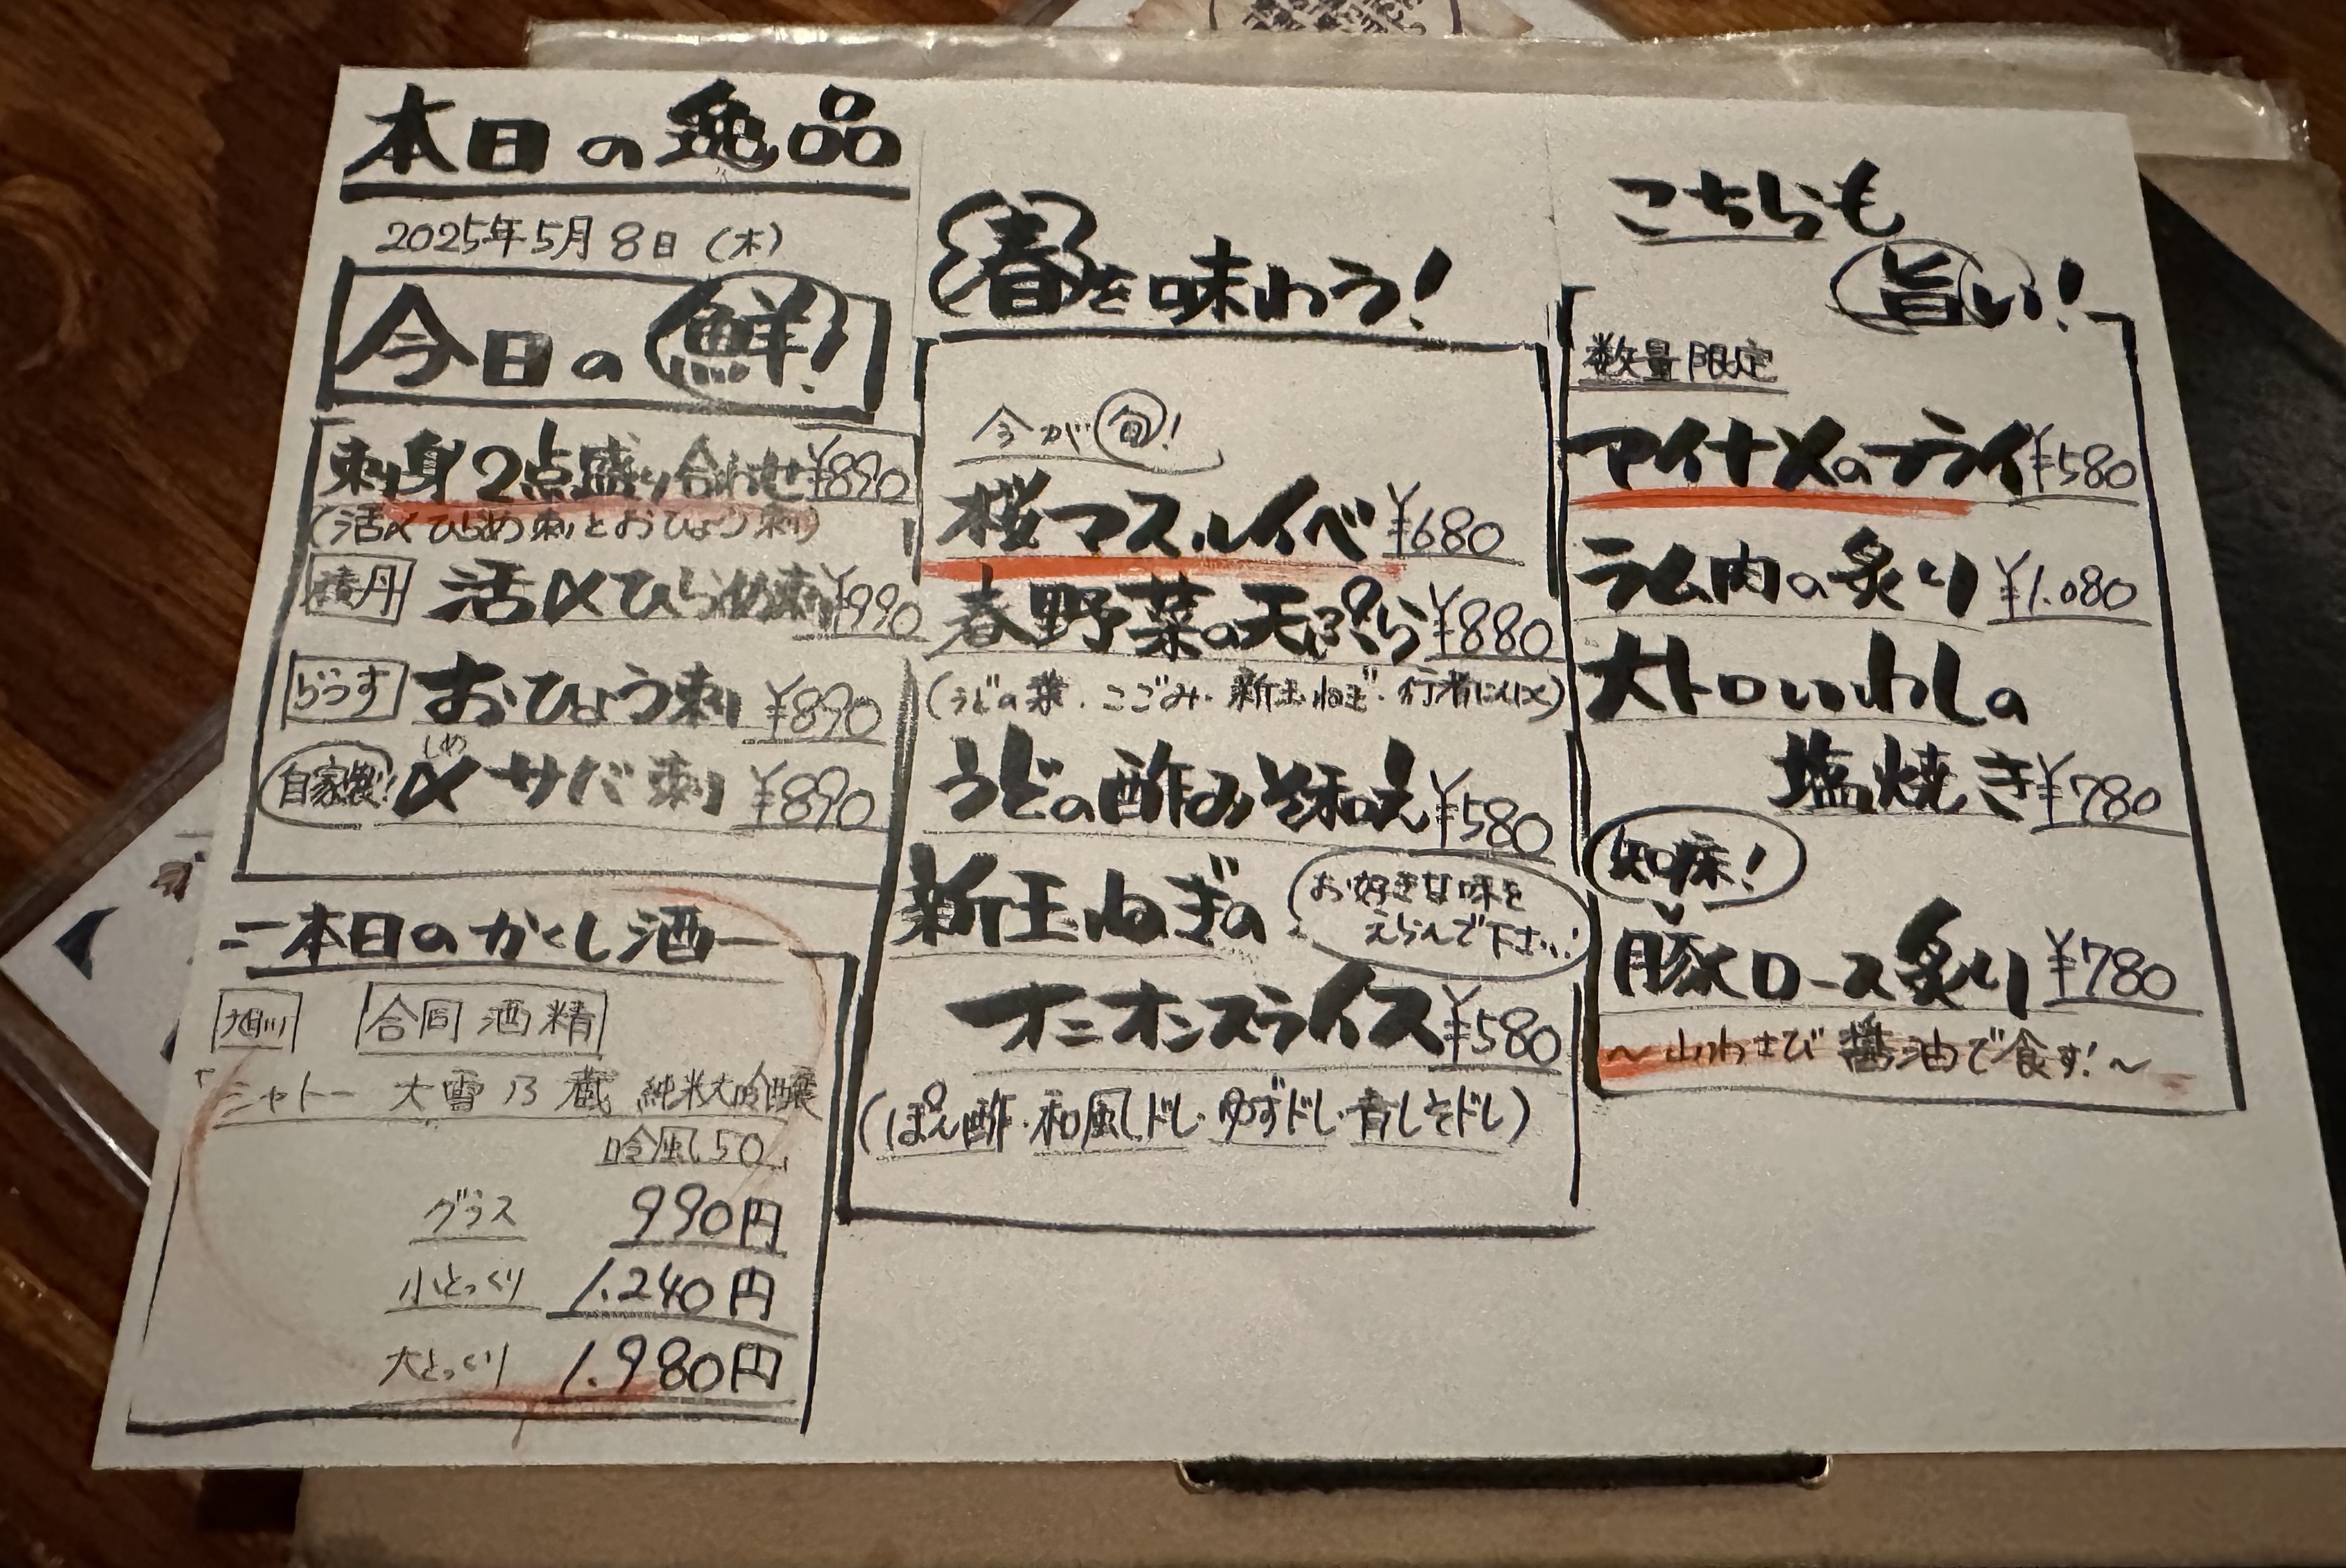 本日の逸品
2025年5月8日(木)
今日の鮮!
刺身2点盛り合わせ¥890
(活〆ひらめ刺とおひょう刺)
積丹 活〆ひらめ刺¥990
らうす おひょう刺 ¥890
しめ
自家製! 〆サバ刺 ¥890
本日のかくし酒
旭川 合同酒精
「シャトー 大雪乃蔵 純米大吟醸
吟風50」
グラス 990円
小とっくり 1.240円
大とっくり 1.980円
春を味わう!
今が旬!
桜マスルイベ ¥680
春野菜の天ぷら¥880
(うどの葉・こごみ・新玉ねぎ・行者にんにく)
うどの酢みそ和え¥580
新玉ねぎの
お好きな味を
えらんで下さい!
オニオンスライス¥580
(ぽん酢・和風ドレ・ゆずドレ・青しそドレ)
こちらも
旨い!
数量限定
アイナメのフライ¥580
ラム肉の炙り ¥1.080
大トロいわしの
塩焼き¥780
知床!
豚ロース炙り ¥780
～山わさび醤油で食す!～